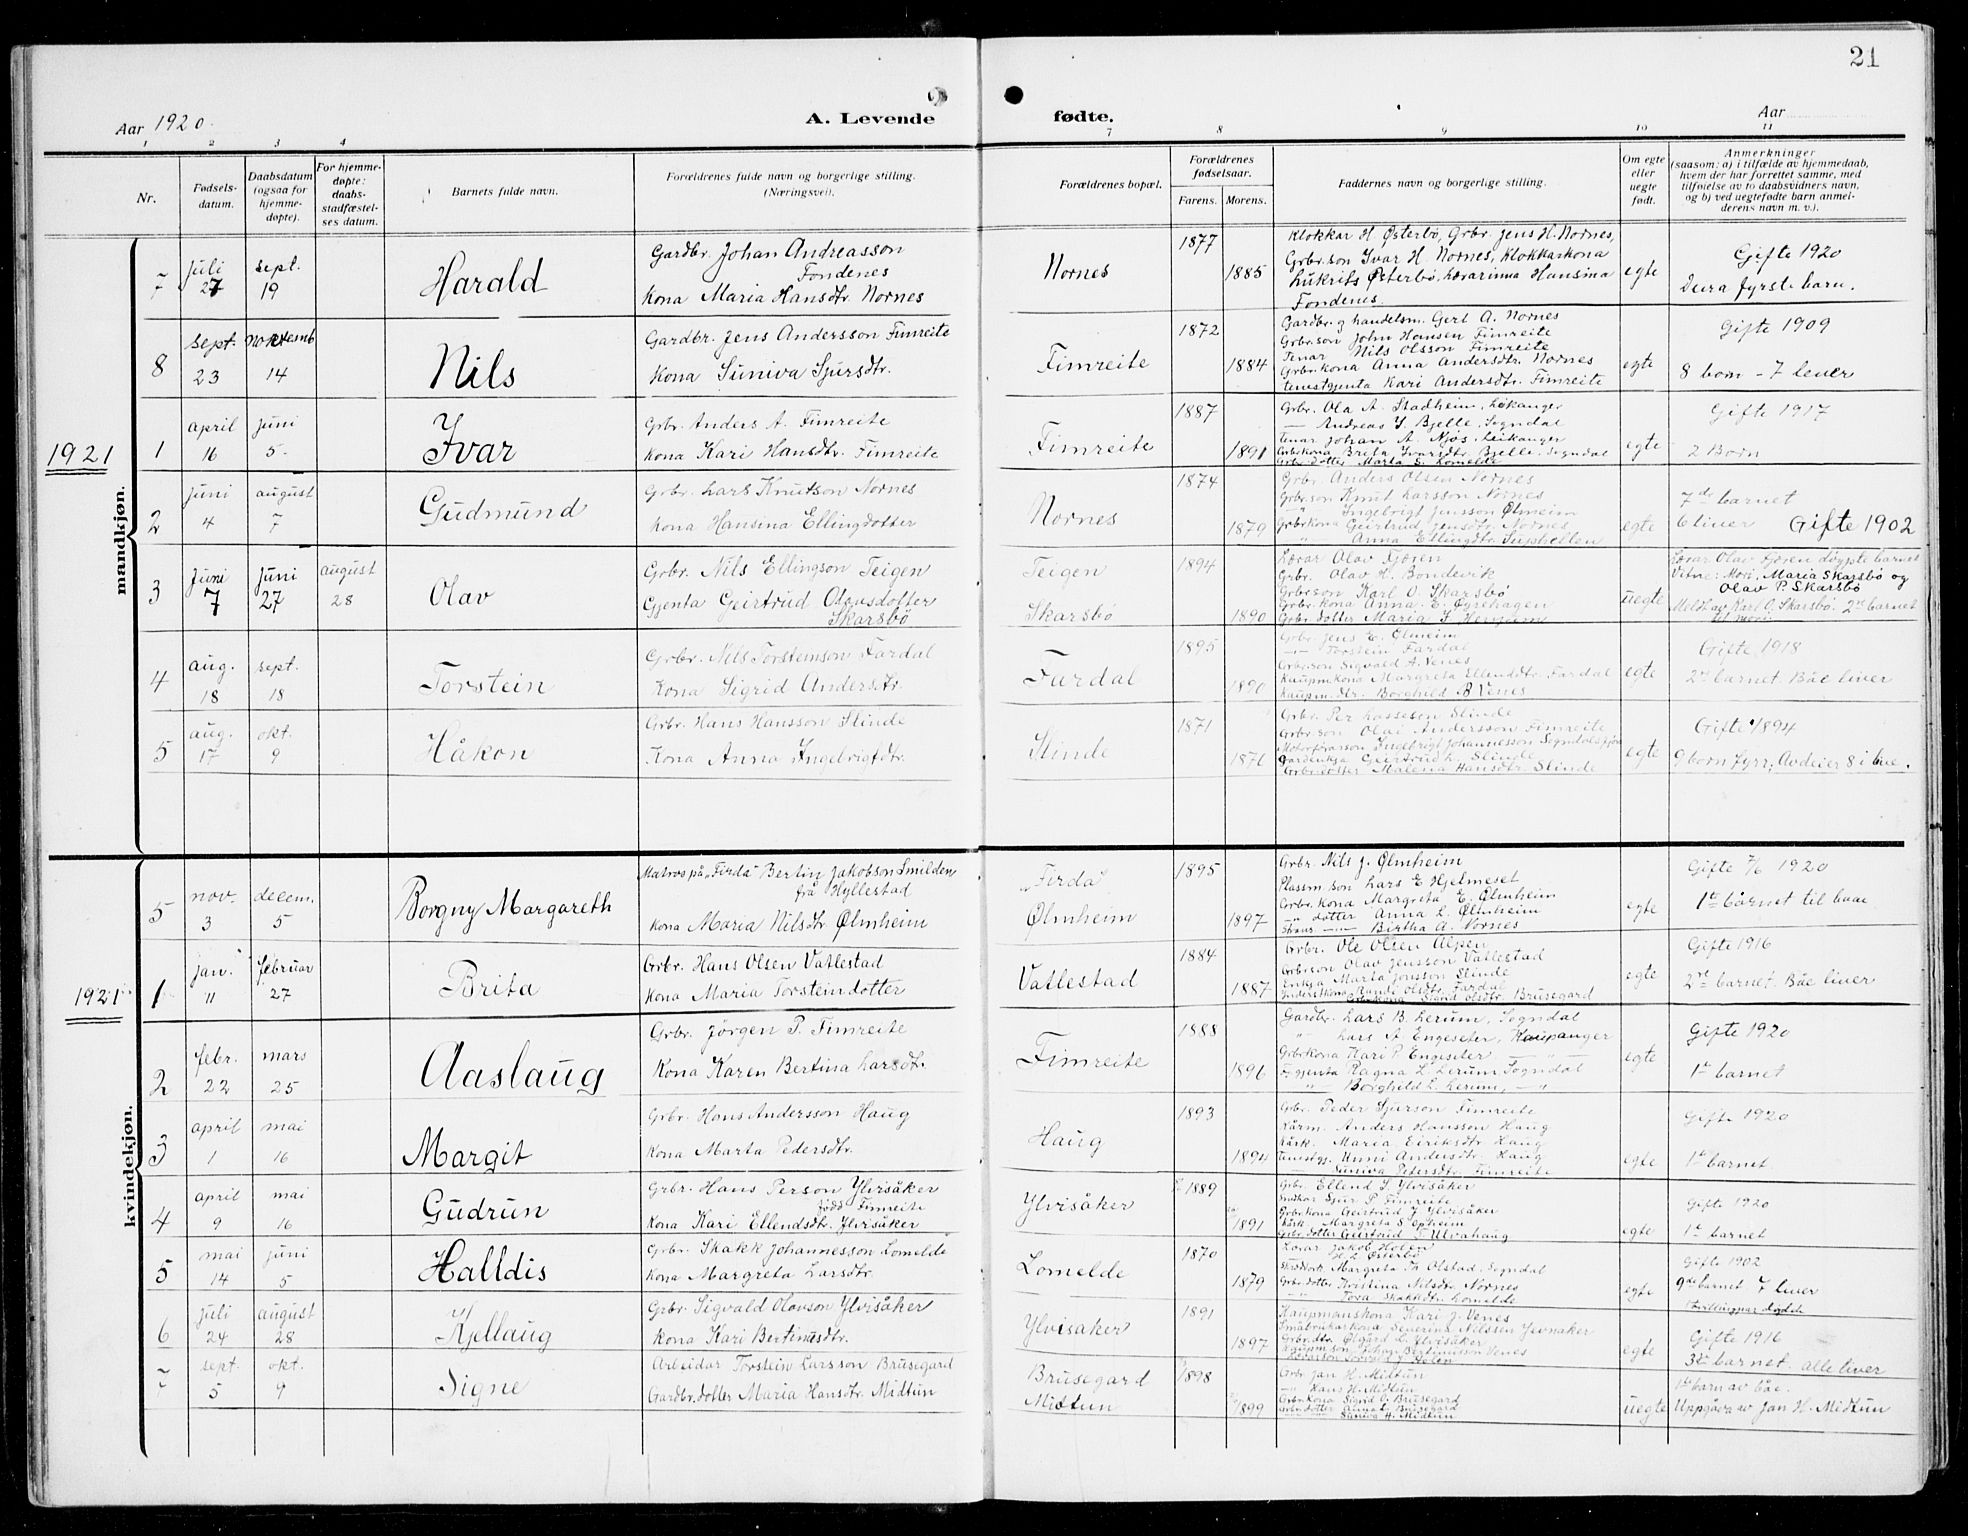 21
Aar 1920.
A. Levende
fødte.
Aar
1 2 3 4 7 8 9 10 11
Nr.
Fødsels-
datum.
Daabsdatum
(ogsaa for
hjemme-
døpte).
For hjemme-
døpte:
daabs-
stadfæstel-
ses datum.
Barnets fulde navn.
Forældrenes fulde navn og borgerlige stilling.
(Næringsvei).
Forældrenes bopæl.
Forældrenes
fødselsaar.
Farens. Morens.
Faddernes navn og borgerlige stilling.
Om egte
eller
uegte
født.
Anmerkninger
(saasom: a) i tilfælde av hjemmedaab,
hvem der har forrettet samme, med
tilføielse av to daabsvidners navn,
og b) ved uegtefødt barn anmel-
derens navn m. v.).
mandkjøn.
7
juli
27
sept.
19
Harald
Gardbr. Johan Andreasson
Fondenes
Kona Maria Hansdtr. Nornes
Nornes
1877
1885
Klokkar H. Østerbö, Grbr. Jens H. Nornes,
Grbr.son Ivar H. Nornes, Klokkarkona
Lukrits Østerbö, Lærarinna Hansina
Fondenes.
egte
Gifte 1920
Deira fyrste barn.
8
sept.
23
14
Nils
Gardbr. Jens Andersson Fimreite
Kona Süniva Sjursdtr.
Fimreite
1872
1884
Gardbr. og handelsm. Gert A. Nornes
Grbr.son John Hansen Fimreite
Tenar Nils Olsson Fimreite
Grbr.kona Anna Andersdtr. Nornes
tenestgjenta Kari Andersdtr. Fimreite
egte
Gifte 1909
8 born - 7 lever
1921
1
april
16
juni
5.
Ivar
Grbr. Anders A. Fimreite
Kona Kari Hansdtr. Fimreite
Fimreite
1887
1891
Grbr. Ola A. Stadheim, Leikanger
— Andreas I. Bjelle, Sogndal
Tenar Johan A. Njøs, Leikanger
Grbr.kona Brita Ivarsdtr. Bjelle, Sogndal
Grbr.dotter Marta S. Lomelde
egte
Gifte 1917
2 Born
2
juni
4
august
7
Gudmund
Grbr. Lars Knutson Nornes
Kona Hansina Ellingdotter
Nornes
1874
1879
Grbr. Anders Olsen Nornes
Grbr.son Knut Larsson Nornes
" Ingebrigt Jensson Ølmeim
Grbr.kona Geirtrud Jensdtr. Nornes
" Anna Ellingdtr. Suphellen
egte
7de barnet
6 liver Gifte 1902
3
Juni
7
Juni
27
august
28
Olav
Grbr. Nils Ellingson Teigen
Gjenta Geirtrud Olavsdotter
Skarsbö
Teigen
Skarsbö
1894
1890
Lærar Olav Fjæren
Grbr. Olav H. Bondevik
Grbr.son Karl O. Skarsbö
Grbr.kona Anna E. Øyrehagen
Grbr.dotter Maria
uegte
Lærar Olav Fjæren döypte barnet
Vitne: Mori, Maria Skarsbö og
Olav P. Skarsbö
Meldt av Karl O. Skarsbö. 2re barnet
til mori.
4
aug.
18
sept.
18
Torstein
Grbr. Nils Torsteinson Fardal
Kona Sigrid Andersdtr.
Fardal
1895
1890
Grbr. Jens E. Ølmeim
— Torstein Fardal
Grbr.son Sigvald A. Venes
Kaupm.kona Margreta Ellendsdtr. Fardal
Kaupm. dtr. Borghild B Venes
egte
Gifte 1918
2re barnet. Båe liver
5
aug.
17
okt.
9
Håkon
Grbr. Hans Hansson Slinde
Kona Anna Ingebrigtdtr.
Slinde
1871
1871
Grbr. Per Lassesen Slinde
Grbr.son Olai Andersson Fimreite
Motorførarson Ingebrigt Johannesson Sogndalsfjøra
Gardenkja Geirtrud L. Slinde
Grbrdotter Malena Hansdtr. Slinde
egte
Gifte 1894
9 born fyrr; Av deier 8 i live.
kvindekjøn.
5
nov.
3
decem.
5
Borgny Margareth
Matros på „Firda" Bertin Jakobson Smilden,
frå Hyllestad
Kona Maria Nilsdtr. Ølmheim
„Firda"
Ølmheim
1895
1897
Grbr. Nils J. Ølmheim
Plassm.son Lars E Hjelmeset
Grbr. Kona Margreta E. Ølmheim
" dotter Anna L. Ølmheim
— Birtha A. Nornes
egte
Gifte 7/6 1920
1te bårnet til baae
1921
1
jan.
11
februar
27
Brita
Grbr. Hans Olsen Vatlestad
Kona Maria Torsteindotter
Vatlestad
1884
1887
Grbr. Ole Olsen Alpen
Grbrson Olav Jensson Vatlestad
Enkja Marta Jonsson Slinde
Randi Olsdtr. Fardal
Brusegard
egte
Gifte 1916
2re barnet. Båe liver
2
febr.
22
mars
25
Aaslaug
Grbr. Jörgen P. Fimreite
Kona Karen Bertina Larsdtr.
Fimreite
1888
1896
Gardbr. Lars B. Lerum, Sogndal
" Lars A. Engeseter, Kaupanger
Grbrkona Kari P. Engeseter — " —
Ragna L. Lerum, Sogndal
" Borghild L. Lerum, — "
egte
Gifte 1920
1te barnet
3
april
1
mai
16
Margit
Grbr. Hans Andersson Haug
Kona Marta Pedersdtr.
Haug
1893
1894
Grbr. Peder Sjurson Fimreite
Kårm. Anders Hansson Haug
Kårk. Maria Eiriksdtr. Haug
Tenestgj. Unni Andersdtr. Haug
— Süniva Pedersdtr. Fimreite
egte
Gifte 1920
1te barnet.
4
april
9
mai
16
Gudrun
Grbr. Hans Person Ylvisåker
född Fimreite
Kona Kari Ellendsdtr. Ylvisåker
Ylvisåker
1889
1891
Grbr. Ellend S. Ylvisåker
Sjur P. Fimreite
Grbr.kona Geirtrud J Ylvisåker
Kårk. Margreta S. Opheim
Grbr.dotter Geirtrud S Ulvahaug
egte
Gifte 1920
1te barnet
5
mai
14
juni
5
Halldis
Grbr. Skakk Johannesson Lomelde
Kona Margreta Larsdtr.
Lomelde
1870
1879
Lærar Jakob Holen
H. L. Østerbö
Margreta Th Olstad, Sogndal
Grbr.dotter Kristina Nilsdtr. Nornes
" Tora Skakkdtr. Lomelde
egte
Gifte 1902
9de barnet 7 liver
6
juli
24
august
28
Kjellaug
Grbr. Sigvald Olavson Ylvisåker
Kona Kari Bertinusdtr.
Ylvisaker
1891
1897
Kaupmanskona Kari J. Venes
Småbrukarkona Severina Nilssen Yvnaker
Grbr.dtr. Olgard L. Ylvisåker
Kaupm.son Johan Bertinusson Venes
egte
Gifte 1916
3de barnet. alle liver
7
sept.
5
okt.
9
Signe
Arbeidar Torstein Larsson Brusegard
Gardbr.dotter Maria Hansdtr. Midtun
Brusegard
Midtun
1898
1899
Grbr. Jan H. Midtun
— Hans H. Midtun
Grbr.Kona Sigrid O. Brusegard
Grbr.dotter Anna L. Brusegard
— Süniva H. Midtun
uegte
1te barn av båe.
Uppgåva av Jan H. Midtun